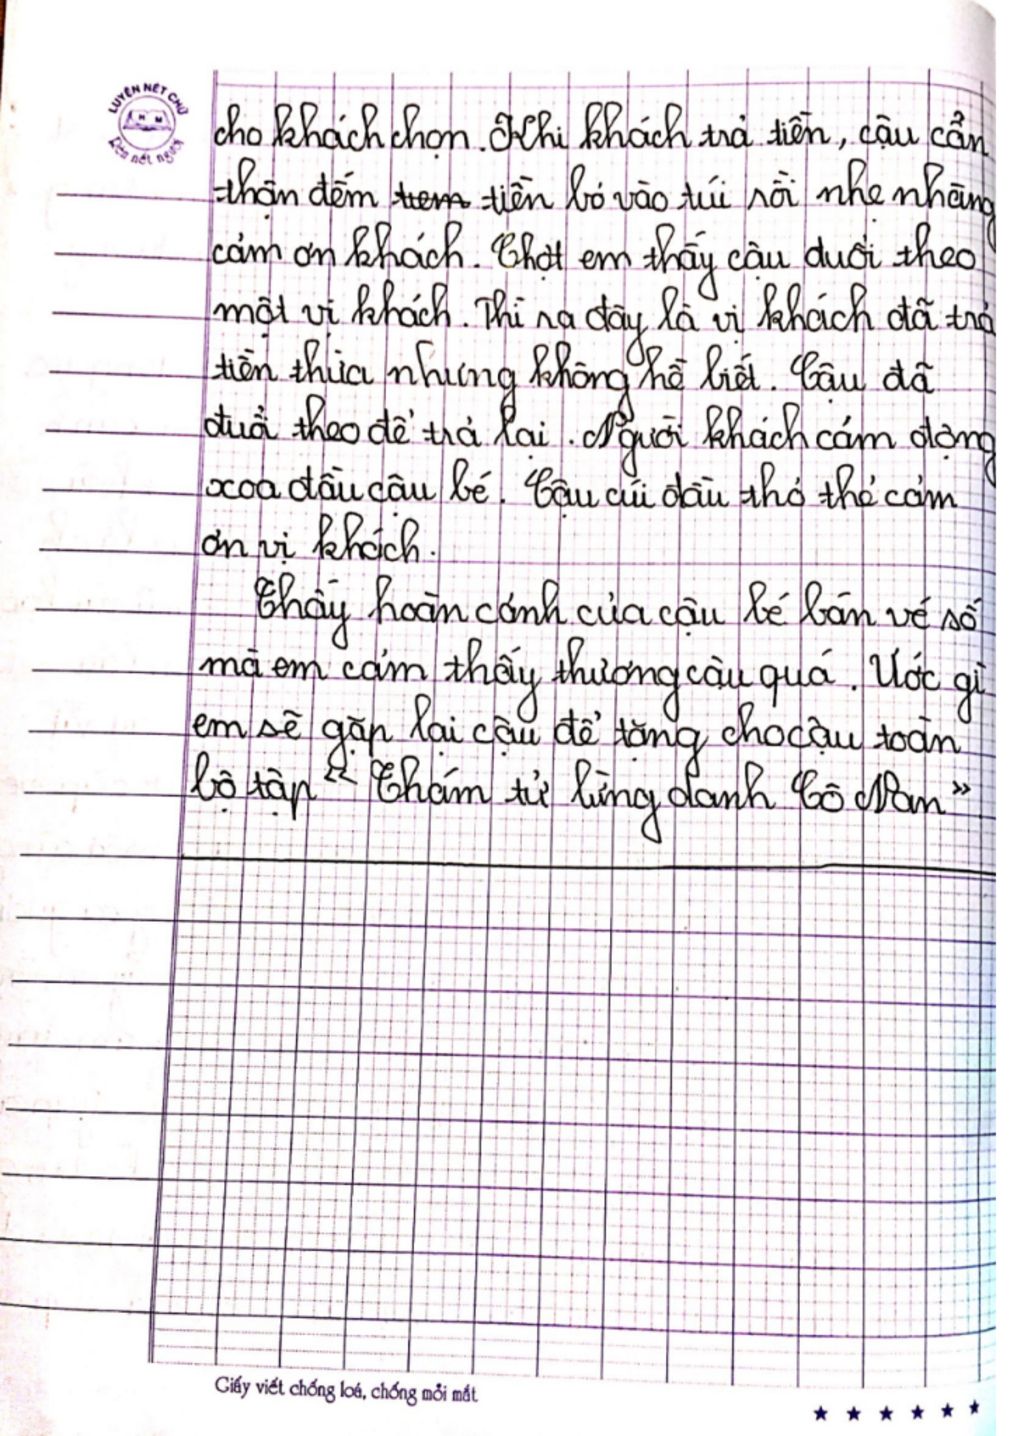 LUYỆN NÉT CHỮ
H M
Rèn nết người
cho khách chọn. Khi khách trả tiền, cậu cẩn
thận đếm tiền bỏ vào túi rồi nhẹ nhàng
cảm ơn khách. Chợt em thấy cậu đuổi theo
một vị khách. Thì ra đây là vị khách đã trả
tiền thừa nhưng không hề biết. Cậu đã
đuổi theo để trả lại. Người khách cảm động
xoa đầu cậu bé. Cậu cúi đầu thỏ thẻ cảm
ơn vị khách.
Thấy hoàn cảnh của cậu bé bán vé số
mà em cảm thấy thương cậu quá. Ước gì
em sẽ gặp lại cậu để tặng cho cậu toàn
bộ tập “ Thám tử lừng danh Cô Nan”
Giấy viết chống loá, chống mỏi mắt